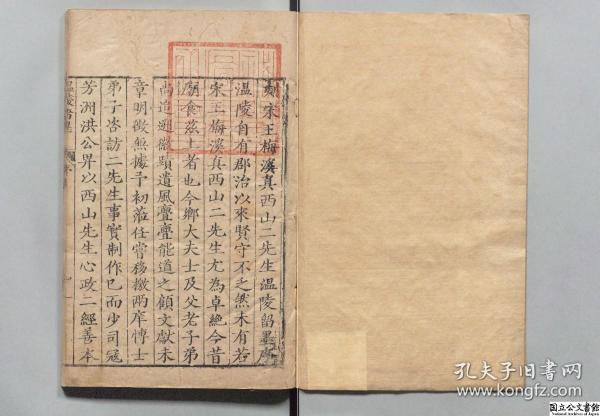 刻宋王梅溪真西山二先生温陵留墨序
温陵自有郡治以來賢守不乏然未有若
宋王梅溪真西山二先生尤為卓絶今昔
廟食茲土者也今鄉大夫士及父老子弟
尚追遡徽顯遺風亹亹能道之顧文獻未
章明徵無據予初蒞任嘗移檄兩庠博士
弟子咨訪二先生事實制作已而少司寇
芳洲洪公畀以西山先生心政二經善本
温陵留墨
孔夫子旧书网
kongfz.com
国立公文書館
National Archives of Japan